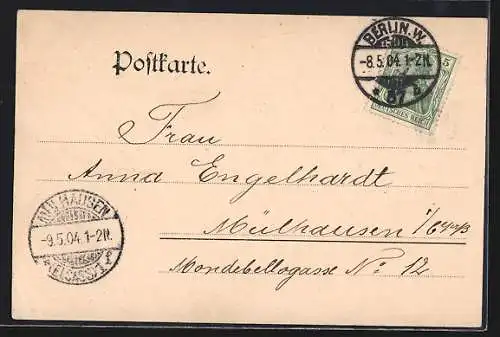 Postkarte.
BERLIN. W.
-8.5.04. 1-2N.
* 57 b
5
DEUTSCHES REICH
Frau
Anna Engelhardt
Mülhausen i/Elsaß
Mondebellogasse No 12
MÜLHAUSEN
-9.5.04. 1-2N.
* (ELSASS) 1 f